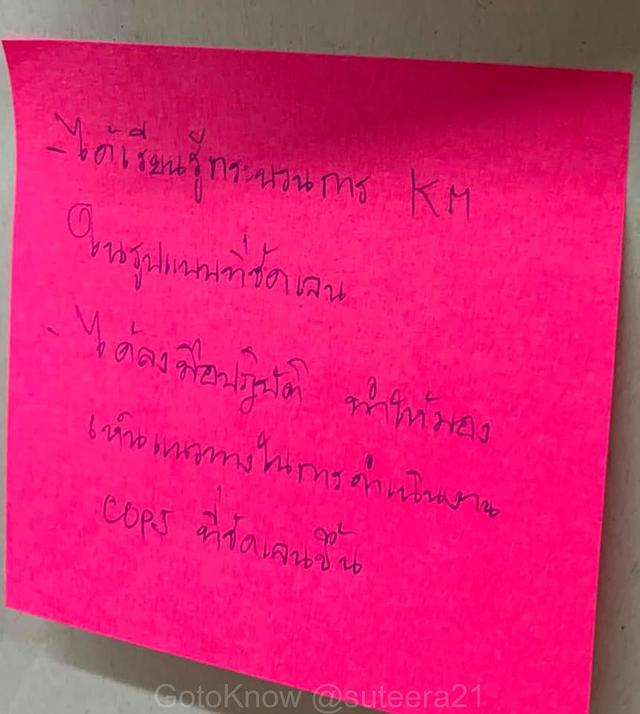 - ได้เรียนรู้กระบวนการ KM
ในรูปแบบที่ชัดเจน
- ได้ลงมือปฏิบัติ ทำให้มอง
เห็นแนวทางในการดำเนินงาน
COPs ที่ชัดเจนขึ้น
GotoKnow @suteera21